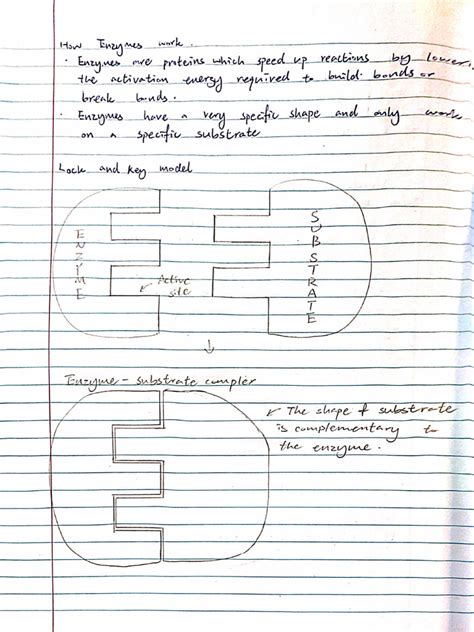 How Enzymes work.
· Enzymes are proteins which speed up reactions by lower
the activation energy required to build bonds or
break bonds.
· Enzymes have a very specific shape and only work
on a specific substrate
Lock and key model
ENZYME
SUBSTRATE
Active
site
Enzyme - substrate complex
The shape of substrate
is complementary to
the enzyme.